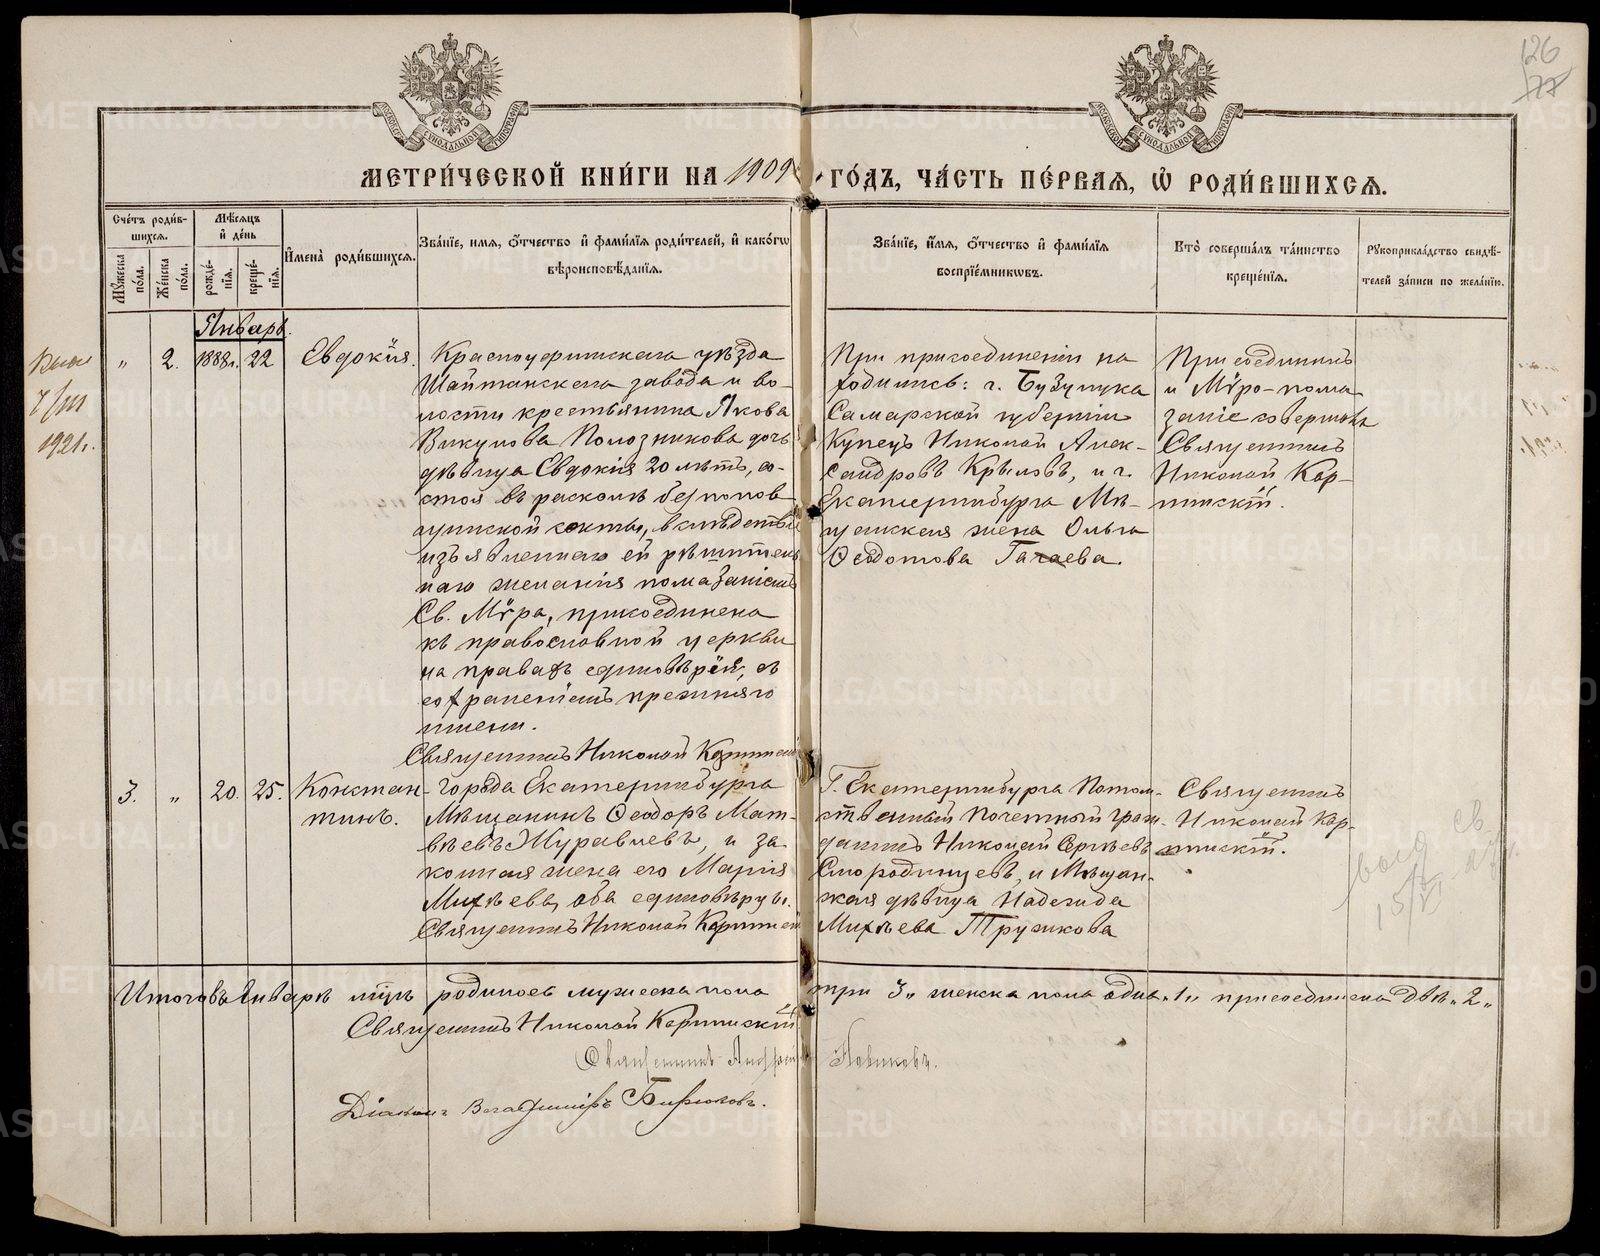 126
77
МЕТРИ́ЧЕСКОЙ КНИ́ГИ НА 1909 ГО́ДЪ, ЧА́СТЬ ПЕ́РВАЯ, Ѡ РОДИ́ВШИХСЯ.
Сче́тъ роди́вшихся.
Мꙋ́жеска по́ла.
Же́нска по́ла.
Мѣ́сяцъ и҆ де́нь
рожде́нїя.
креще́нїя.
И҆мена̀ роди́вшихся.
Зва́нїе, имя, ѻ҆́тчество и҆ фами́лїя роди́телей, и҆ како́гѡ вѣроисповѣ́данїя.
Зва́нїе, и҆́мя, ѻ҆́тчество и҆ фами́лїя воспрїе́мникѡвъ.
Кто̀ соверша́лъ та́инство креще́нїя.
Рꙋкоприкла́дство свидѣ́телей за́писи по жела́нїю.
Январь.
1921 г.
„ 2. 1888 г. 22 Евдокія.
Красноуфимскаго уѣзда
Шайтанскаго завода и во-
лости крестьянина Якова
Викулова Полозникова дочь
дѣвица Евдокія 20 лѣтъ, со-
стоя въ расколѣ безпопов-
щинской секты, вслѣдствіе
изъявленнаго ей рѣшитель-
наго желанія помазаніемъ
Св. Мѵра, присоединена
къ православной церкви
на правахъ единовѣрія, съ
сохраненіемъ прежняго
имени.
Священникъ Николай Карпинскій
При присоединеніи на
ходились: г. Бузулука
Самарской губерніи
Купецъ Николай Алек-
сандровъ Крыловъ, и г.
Екатеринбурга Мѣ-
щанская жена Ольга
Ѳедотова Гагаева.
Присоединилъ
и Мѵро-пома
заніе совершилъ
Священникъ
Николай Кар-
пинскій.
3. „ 20. 25. Констан-
тинъ.
Города Екатеринбурга
Мѣщанинъ Ѳеодоръ Мат-
вѣевъ Журавлевъ, и за
конная жена его Марія
Михѣева, оба единовѣрцы.
Священникъ Николай Карпинскій
Г. Екатеринбурга Потом-
ственный Почетный граж-
данинъ Николай Сергѣевъ
Смородинцевъ, и Мѣщан-
ская дѣвица Надежда
Михѣева Тружикова
Священникъ
Николай Кар-
пинскій.
15/VI
Итого въ Январѣ мцѣ родилось мужеска пола три „3„ женска пола одна „1„ присоединена двѣ „2„
Священникъ Николай Карпинскій
Священникъ Андрей Новиковъ.
Діаконъ Владиміръ Бирюковъ.
METRIKI.GASO-URAL.RU